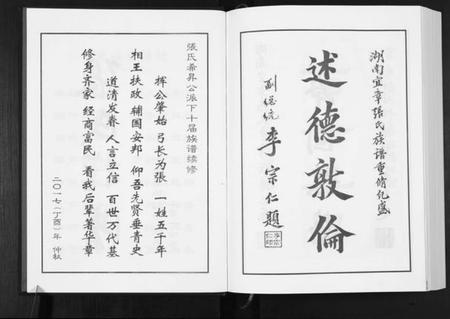 湖南宜章張氏族譜重脩紀盛
述德敦倫
副总统 李宗仁題
張氏希昇公派下十届族谱续修
挥公肇始 弓长为張 一姓五千年
相王扶政 辅国安邦 仰吾先贤垂青史
道清发春 人言立信 百世万代基
修身齐家 经商富民 看我后辈著华章
二〇一七(丁酉)年 仲秋